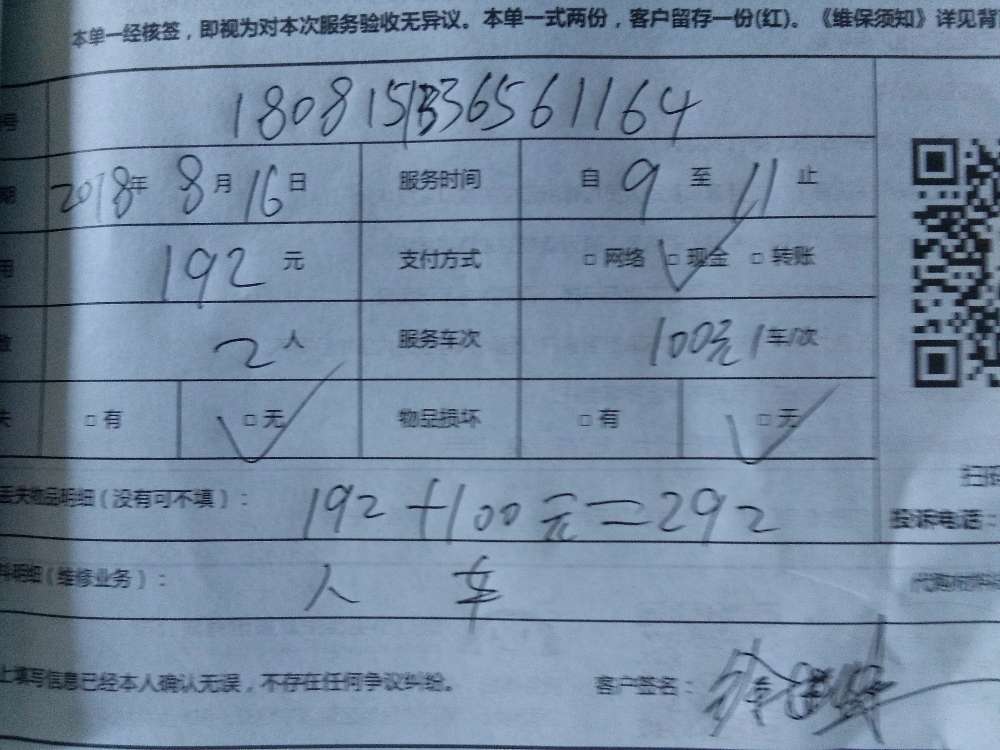 本单一经核签，即视为对本次服务验收无异议。本单一式两份，客户留存一份(红)。《维保须知》详见背
号 1808151336561164
期 2018年 8月16日 服务时间 自 9 至 11 止
用 192 元 支付方式 □ 网络 □ 现金 □ 转账
数 2 人 服务车次 100元 1 车/次
失 □ 有 □ 无 物品损坏 □ 有 □ 无
丢失物品明细（没有可不填）： 192+100元=292
料明细（维修业务）： 人 车
上填写信息已经本人确认无误，不存在任何争议纠纷。 客户签名：
扫
投诉电话：